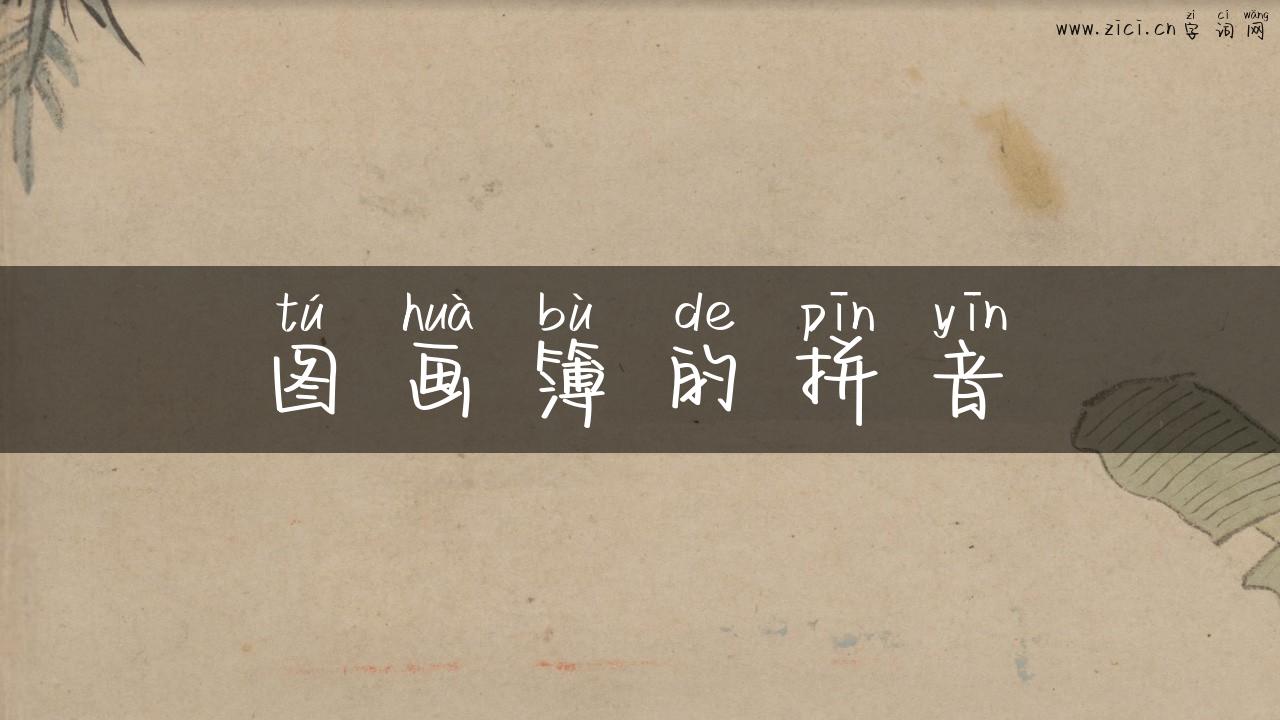 zì cí wǎng
www.zici.cn 字词网
tú huà bù de pīn yīn
图画簿的拼音